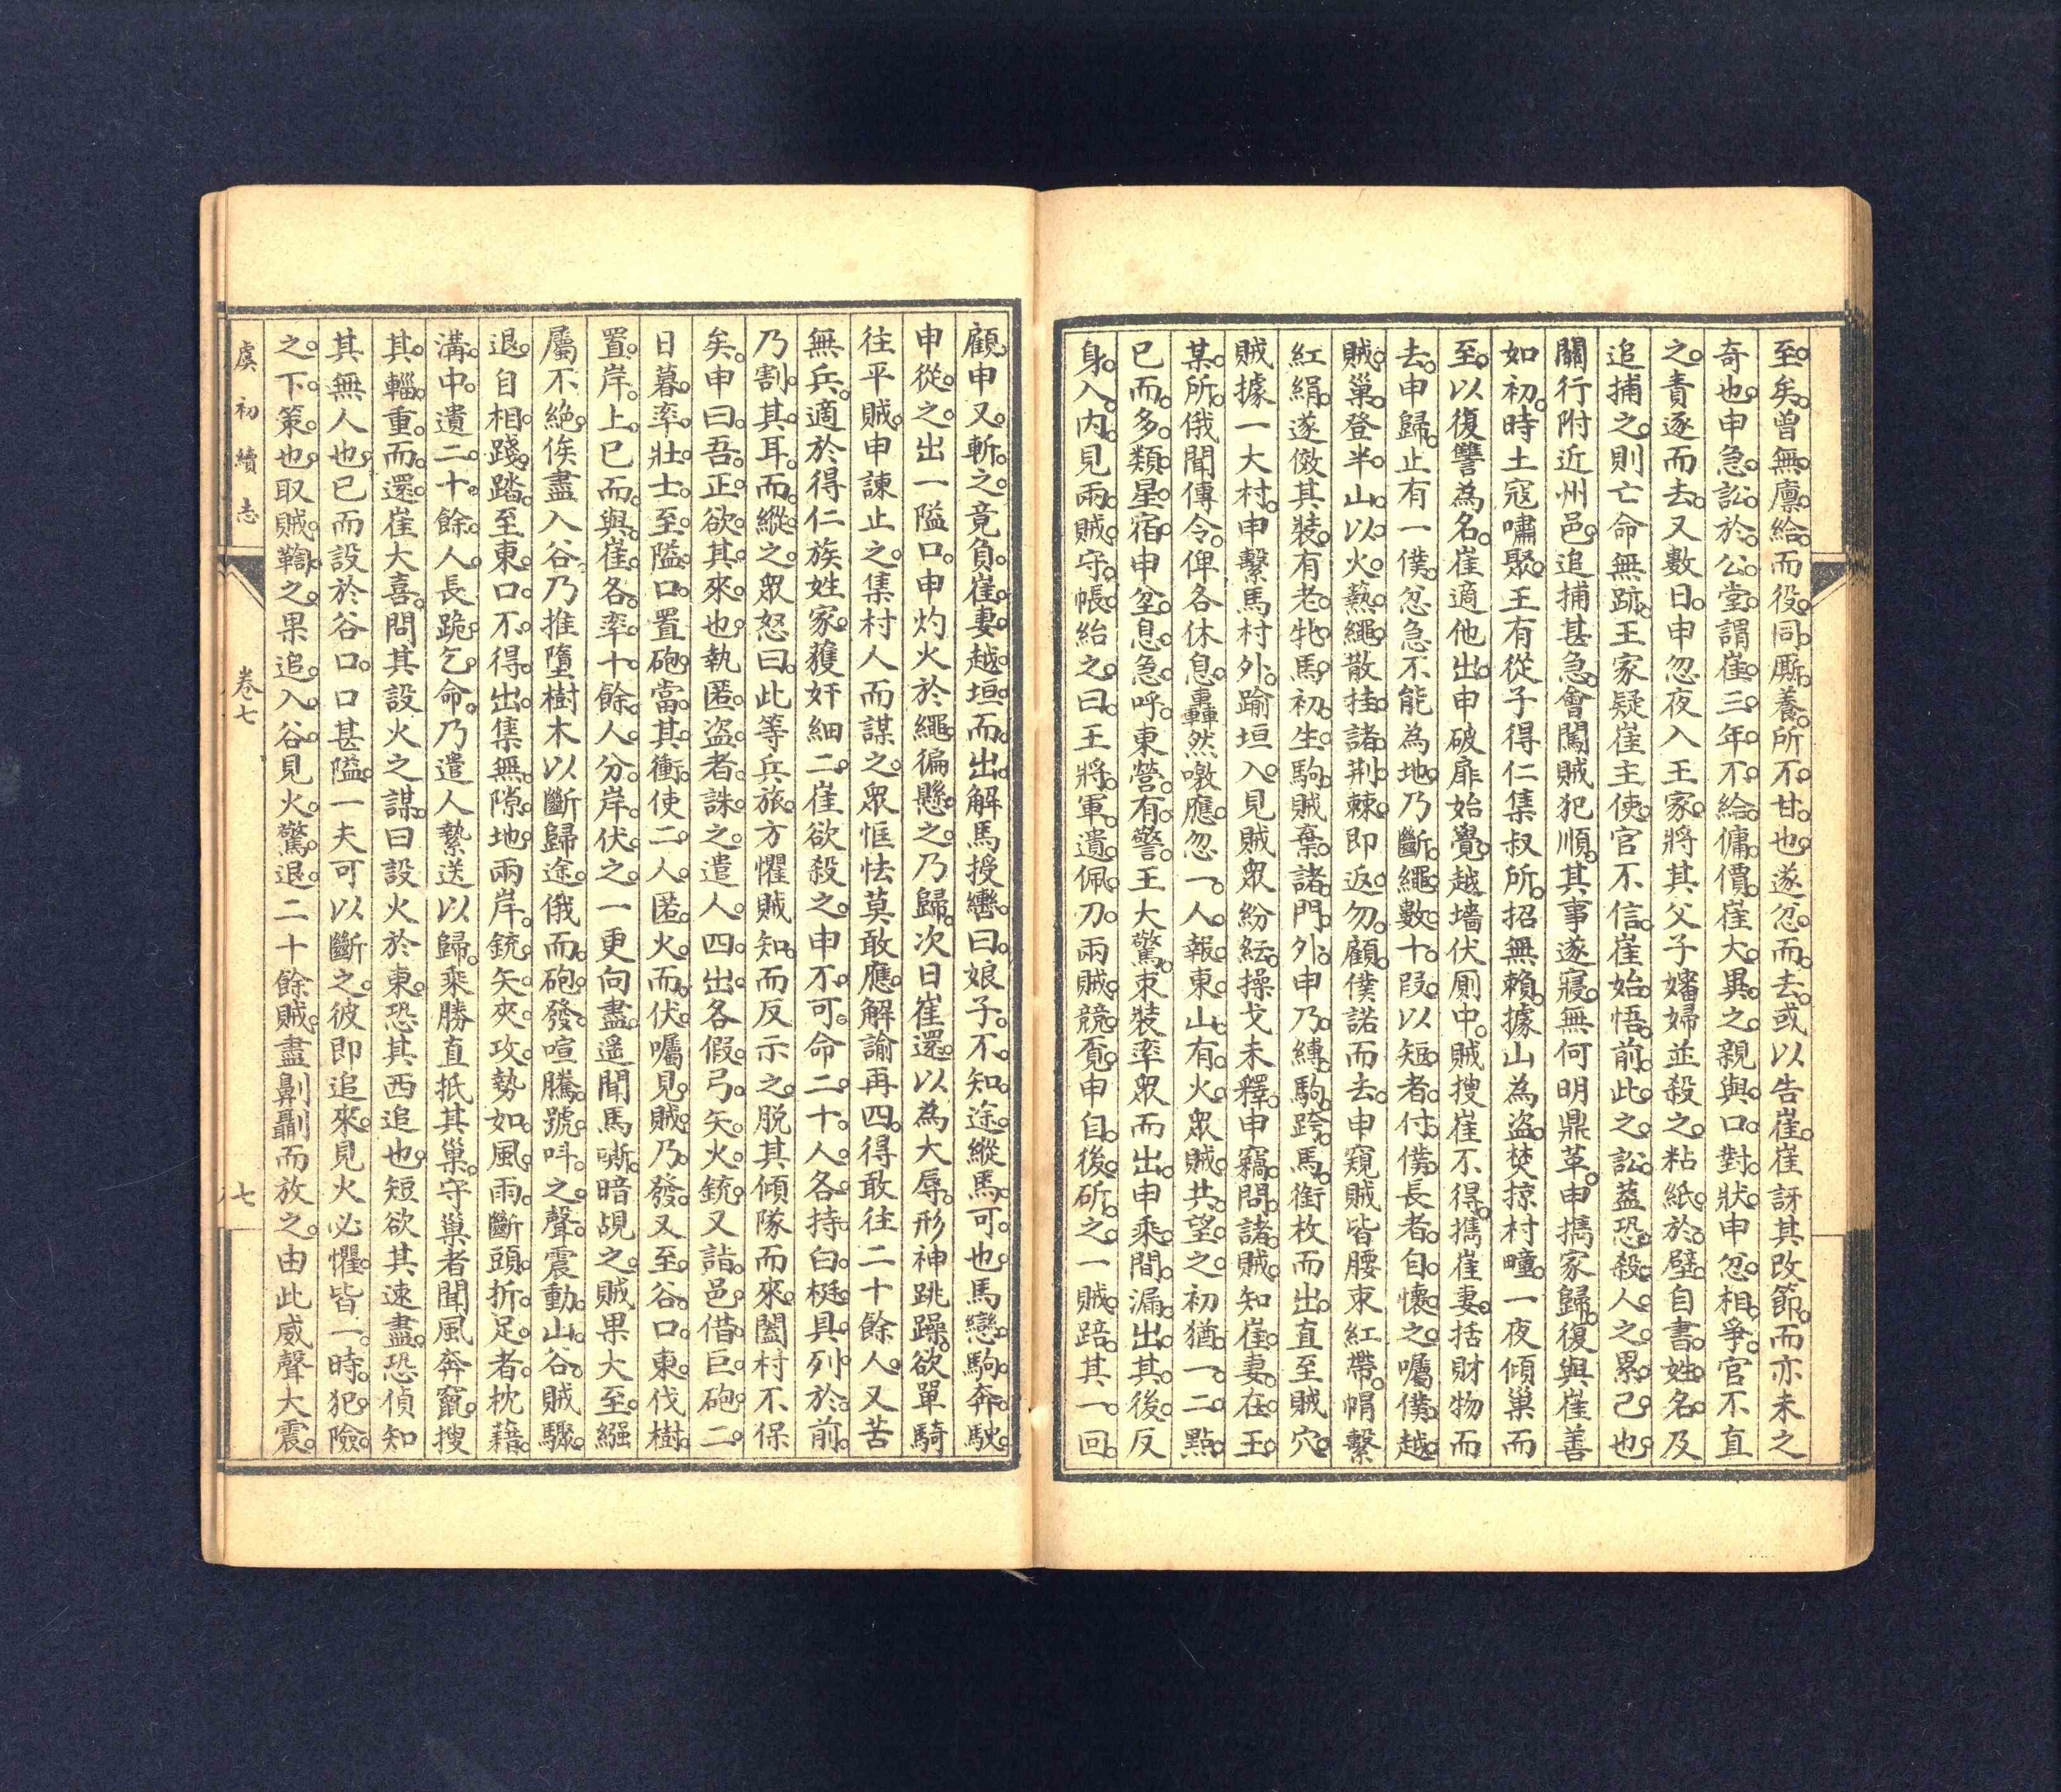 至矣。曾無廩給。而役同厮養。所不甘也。遂忽而去。或以告崔。崔訝其改節。而亦未之
奇也。申急訟於公堂。謂崔三年不給傭價。崔大異之。親與口對狀。申忽相爭。官不直
之。責逐而去。又數日。申忽夜入王家。將其父子嬸婦並殺之。粘紙於壁。自書姓名。及
追捕之。則亡命無跡。王家疑崔主使。官不信。崔始悟前此之訟。蓋恐殺人之累己也。
關行附近州邑。追捕甚急。會闖賊犯順。其事遂寢。無何明鼎革。申攜家歸。復與崔善
如初。時土寇嘯聚。王有從子得仁集叔所招無賴。據山為盜。焚掠村疃。一夜傾巢而
至。以復讐為名。崔適他出。申破扉始覺。越墻伏厠中。賊搜崔不得。攜崔妻。括財物而
去。申歸。止有一僕。忽急不能為地。乃斷繩數十段。以短者付僕。長者自懷之。囑僕越
賊巢。登半山。以火爇繩。散挂諸荆棘。即返勿顧。僕諾而去。申窺賊皆腰束紅帶。帽繫
紅絹。遂傚其裝。有老牝馬。初生駒。賊棄諸門外。申乃縛駒跨馬。銜枚而出。直至賊穴。
賊據一大村。申繫馬村外。踰垣入。見賊眾紛紜。操戈未釋。申竊問諸賊。知崔妻在王
某所。俄聞傳令。俾各休息。轟然噭應。忽一人報東山有火。眾賊共望之。初猶一二點。
已而多類星宿。申坌息急呼。東營有警。王大驚。束裝率眾而出。申乘間漏出其後。反
身入內。見兩賊守帳。紿之曰。王將軍遺佩刀。兩賊競覓。申自後斫之。一賊踣。其一回
顧。申又斬之。竟負崔妻越垣而出。解馬授轡曰。娘子不知途。縱馬可也。馬戀駒奔駛。
申從之。出一隘口。申灼火於繩。徧懸之。乃歸。次日崔還。以為大辱。形神跳躁。欲單騎
往平賊。申諫止之。集村人而謀之。眾恇怯莫敢應。解諭再四。得敢往二十餘人。又苦
無兵。適於得仁族姓家。獲奸細二。崔欲殺之。申不可。命二十人各持白梃。具列於前。
乃割其耳而縱之。眾怒曰。此等兵旅。方懼賊知。而反示之。脱其傾隊而來。闔村不保
矣。申曰。吾正欲其來也。執匿盜者誅之。遣人四出。各假弓矢火銃。又詣邑借巨砲二。
日暮。率壯士至隘口。置砲當其衝。使二人匿火而伏。囑見賊乃發。又至谷口東。伐樹
置岸上。已而與崔各率十餘人。分岸伏之。一更向盡。遙聞馬嘶。暗覘之。賊果大至。繦
屬不絶。俟盡入谷。乃推墮樹木。以斷歸途。俄而砲發。喧騰號呌之聲。震動山谷。賊驟
退。自相踐踏。至東口不得出。集無隙地。兩岸銃矢夾攻。勢如風雨。斷頭折足者。枕藉
溝中。遺二十餘人。長跪乞命。乃遣人縶送以歸。乘勝直抵其巢。守巢者聞風奔竄。搜
其輜重而還。崔大喜。問其設火之謀。曰設火於東。恐其西追也。短欲其速盡。恐偵知
其無人也。已而設於谷口。口甚隘。一夫可以斷之。彼即追來。見火必懼。皆一時犯險
之下策也。取賊鞫之。果追入谷。見火驚退。二十餘賊。盡劓刵而放之。由此威聲大震。
虞初續志
卷七
七